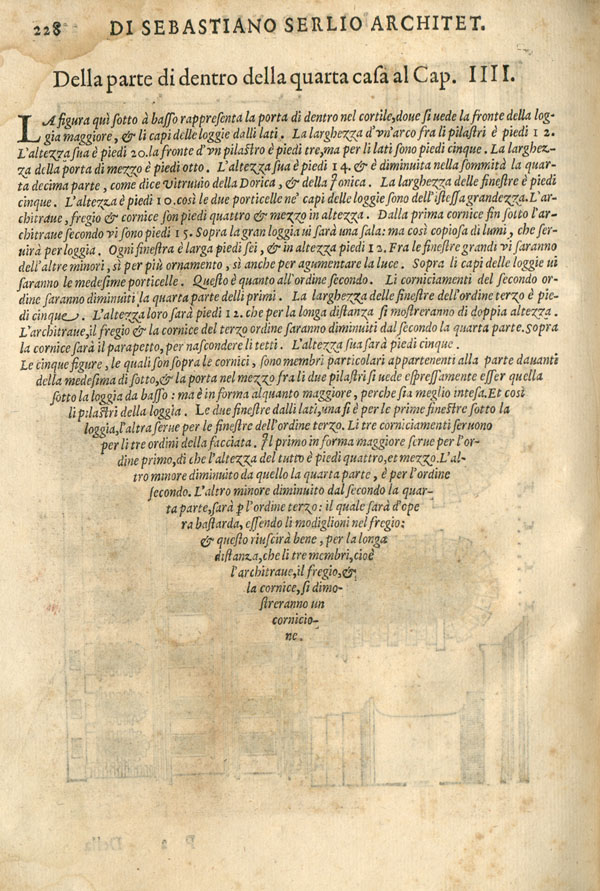 228 DI SEBASTIANO SERLIO ARCHITET.
Della parte di dentro della quarta casa al Cap. IIII.
LA figura quì sotto à basso rappresenta la porta di dentro nel cortile, doue si uede la fronte della log-
gia maggiore, & li capi delle loggie dalli lati. La larghezza d'vn'arco fra li pilastri è piedi 12.
L'altezza sua è piedi 20. la fronte d'vn pilastro è piedi tre, ma per li lati sono piedi cinque. La larghez-
za della porta di mezzo è piedi otto. L'altezza sua è piedi 14. & è diminuita nella sommità la quar-
ta decima parte, come dice Vitruuio della Dorica, & della Ionica. La larghezza delle finestre è piedi
cinque. L'altezza è piedi 10. così le due porticelle ne' capi delle loggie sono dell'istessa grandezza. L'ar-
chitraue, fregio & cornice son piedi quattro & mezzo in altezza. Dalla prima cornice fin sotto l'ar-
chitraue secondo vi sono piedi 15. Sopra la gran loggia ui sarà una sala: ma così copiosa di lumi, che ser-
uirà per loggia. Ogni finestra è larga piedi sei, & in altezza piedi 12. Fra le finestre grandi vi saranno
dell'altre minori, sì per più ornamento, sì anche per agumentare la luce. Sopra li capi delle loggie ui
saranno le medesime porticelle. Questo è quanto all'ordine secondo. Li corniciamenti del secondo or-
dine saranno diminuiti la quarta parte delli primi. La larghezza delle finestre dell'ordine terzo è pie-
di cinque. L'altezza loro sarà piedi 12. che per la longa distanza si mostreranno di doppia altezza.
L'architraue, il fregio & la cornice del terzo ordine saranno diminuiti dal secondo la quarta parte. Sopra
la cornice sarà il parapetto, per nascondere li tetti. L'altezza sua sarà piedi cinque.
Le cinque figure, le quali son sopra le cornici, sono membri particolari appartenenti alla parte dauanti
della medesima di sotto, & la porta nel mezzo fra li due pilastri si uede espressamente esser quella
sotto la loggia da basso: ma è in forma alquanto maggiore, perche sia meglio intesa. Et così
li pilastri della loggia. Le due finestre dalli lati, una si è per le prime finestre sotto la
loggia, l'altra serue per le finestre dell'ordine terzo. Li tre corniciamenti seruono
per li tre ordini della facciata. Il primo in forma maggiore serue per l'or-
dine primo, di che l'altezza del tutto è piedi quattro, et mezzo. L'al-
tro minore diminuito da quello la quarta parte, è per l'ordine
secondo. L'altro minore diminuito dal secondo la quar-
ta parte, sarà p l'ordine terzo: il quale sarà d'ope
ra bastarda, essendo li modiglioni nel fregio:
& questo riuscirà bene, per la longa
distanza, che li tre membri, cioè
l'architraue, il fregio, &
la cornice, si dimo-
streranno un
cornicio-
ne.
P 2 Della